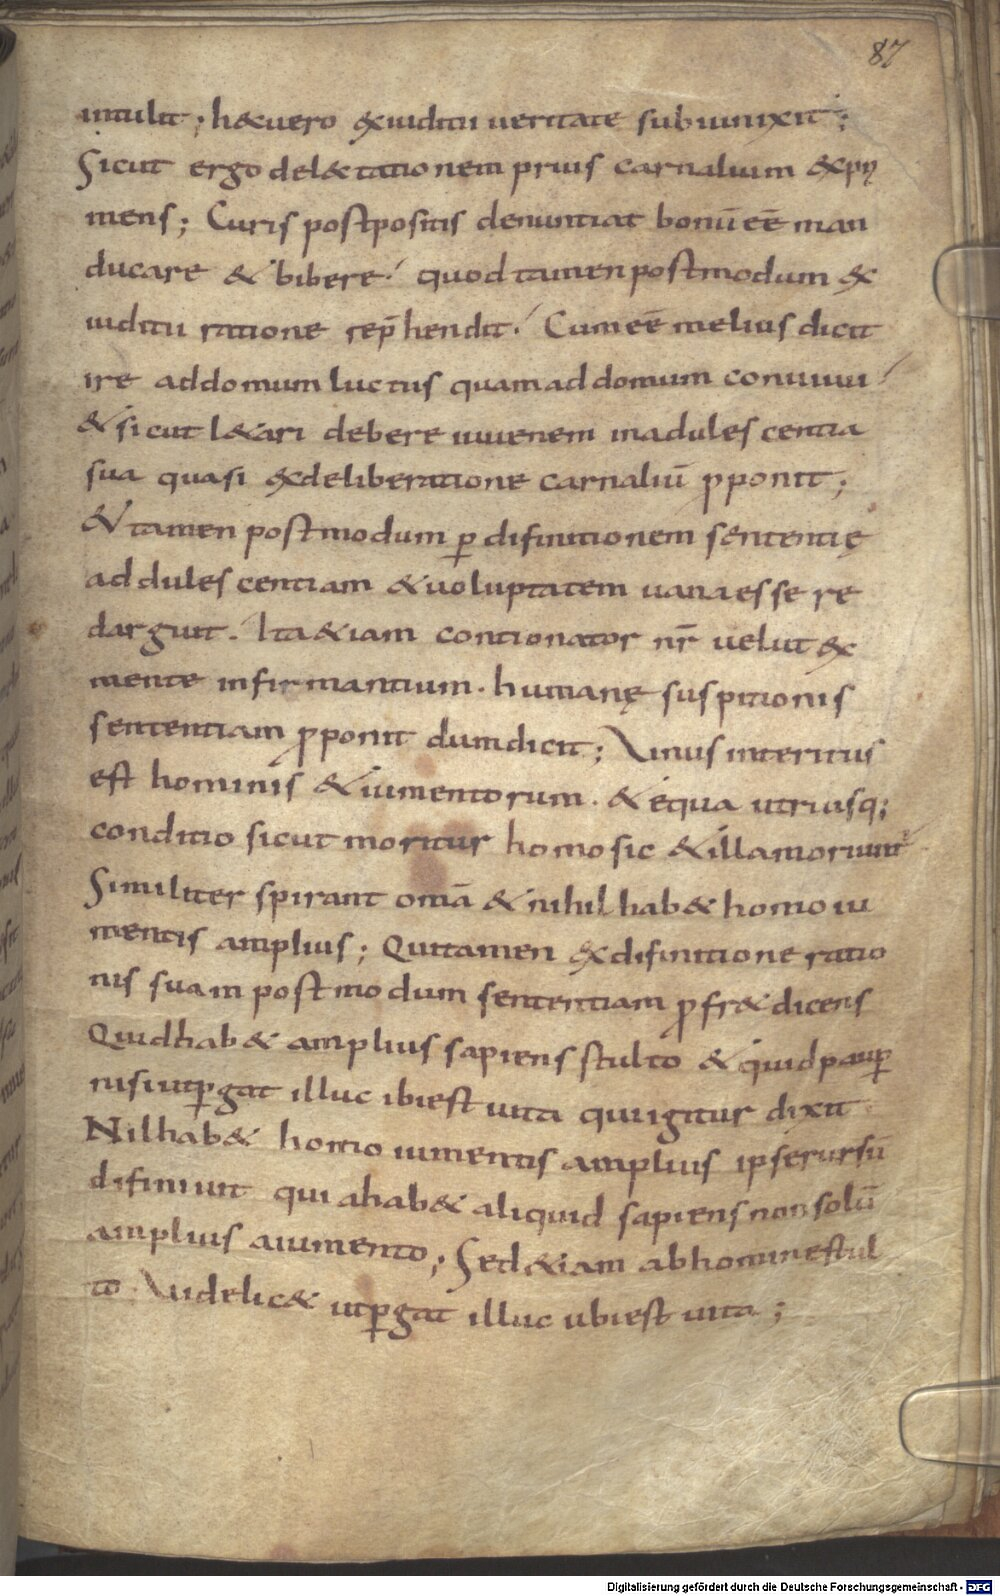 87
intulit; h&vero exiuditii veritate subiunixit;
Sicut ergo del&tationem prius carnalium &xp̄ı
mens; Curis postpositis denuntiat bonū eē man
ducare & bibere. quod tamen postmodum ex
iuditii ratione rep̄hendit. Cum eē melius dicit
ire ad domum luctus quam ad domum conuiuii
& sicut l&ari debere iuuenem in adulescentia
sua quasi ex deliberatione carnaliū p̱ponit;
& tamen postmodum p̱ difinitionem sententię
addulescentiam & uoluptatem uana esse re
darguit. Ita &iam contionator nr̄ uelut ex
mente infirmantium. humanę suspitionis
sententiam p̱ponit dum dicit; Vnus interitus
est hominis & iumentorum. & ęqua utriusq;
conditio sicut moritur homo sic & illa moriunt᷑
Similiter spirant omā & nihil hab& homo iu
mentis amplius; Qui tamen ex difinitione ratio
nis suam postmodum sententiam p̱fr& dicens
Quid hab& amplius sapiens stulto & quid paup̱
nisi ut p̱gat illuc ibi est uita qui igitur dixit
Nil hab& homo iumentis amplius ipse rursū
difiniuit quia hab& aliquid sapiens non solū
amplius a iumento; Sed &iam ab homine stul
to. Videlic& ut p̱gat illuc ubi est uita;
Digitalisierung gefördert durch die Deutsche Forschungsgemeinschaft - DFG